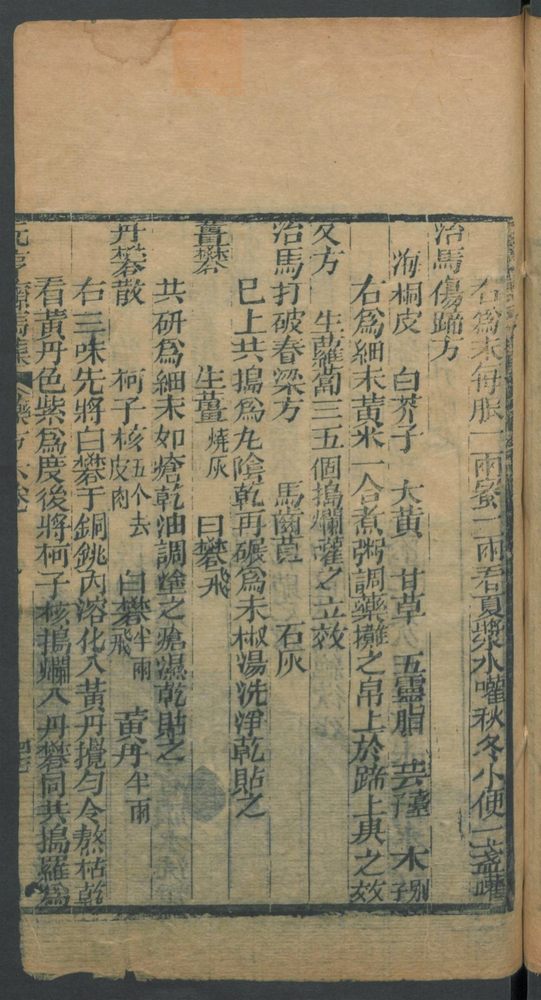 右為末每服一兩蜜二兩春夏漿水嚾秋冬小便一盞嚾
治馬傷蹄方
海桐皮 白芥子 大黃 甘草 五靈脂 芸薹 木別子
右為細末黃米一合煮粥調藥攤之帛上於蹄上裹之效
又方 生蘿蔔三五個搗爛嚾之立效
治馬打破春梁方 馬齒莧 石灰
巳上共搗為丸陰乾再碾為末椒湯洗淨乾貼之
薑礬 生薑燒灰 白礬飛
共研為細末如瘡乾油調塗之瘡濕乾貼之
丹礬散 柯子核五个去皮肉 白礬半兩飛 黃丹半兩
右三味先將白礬于銅銚內溶化入黃丹攪勻令熬枯乾
看黃丹色紫為度後將柯子核搗爛入丹礬同共搗羅為
元亨療馬集 藥方